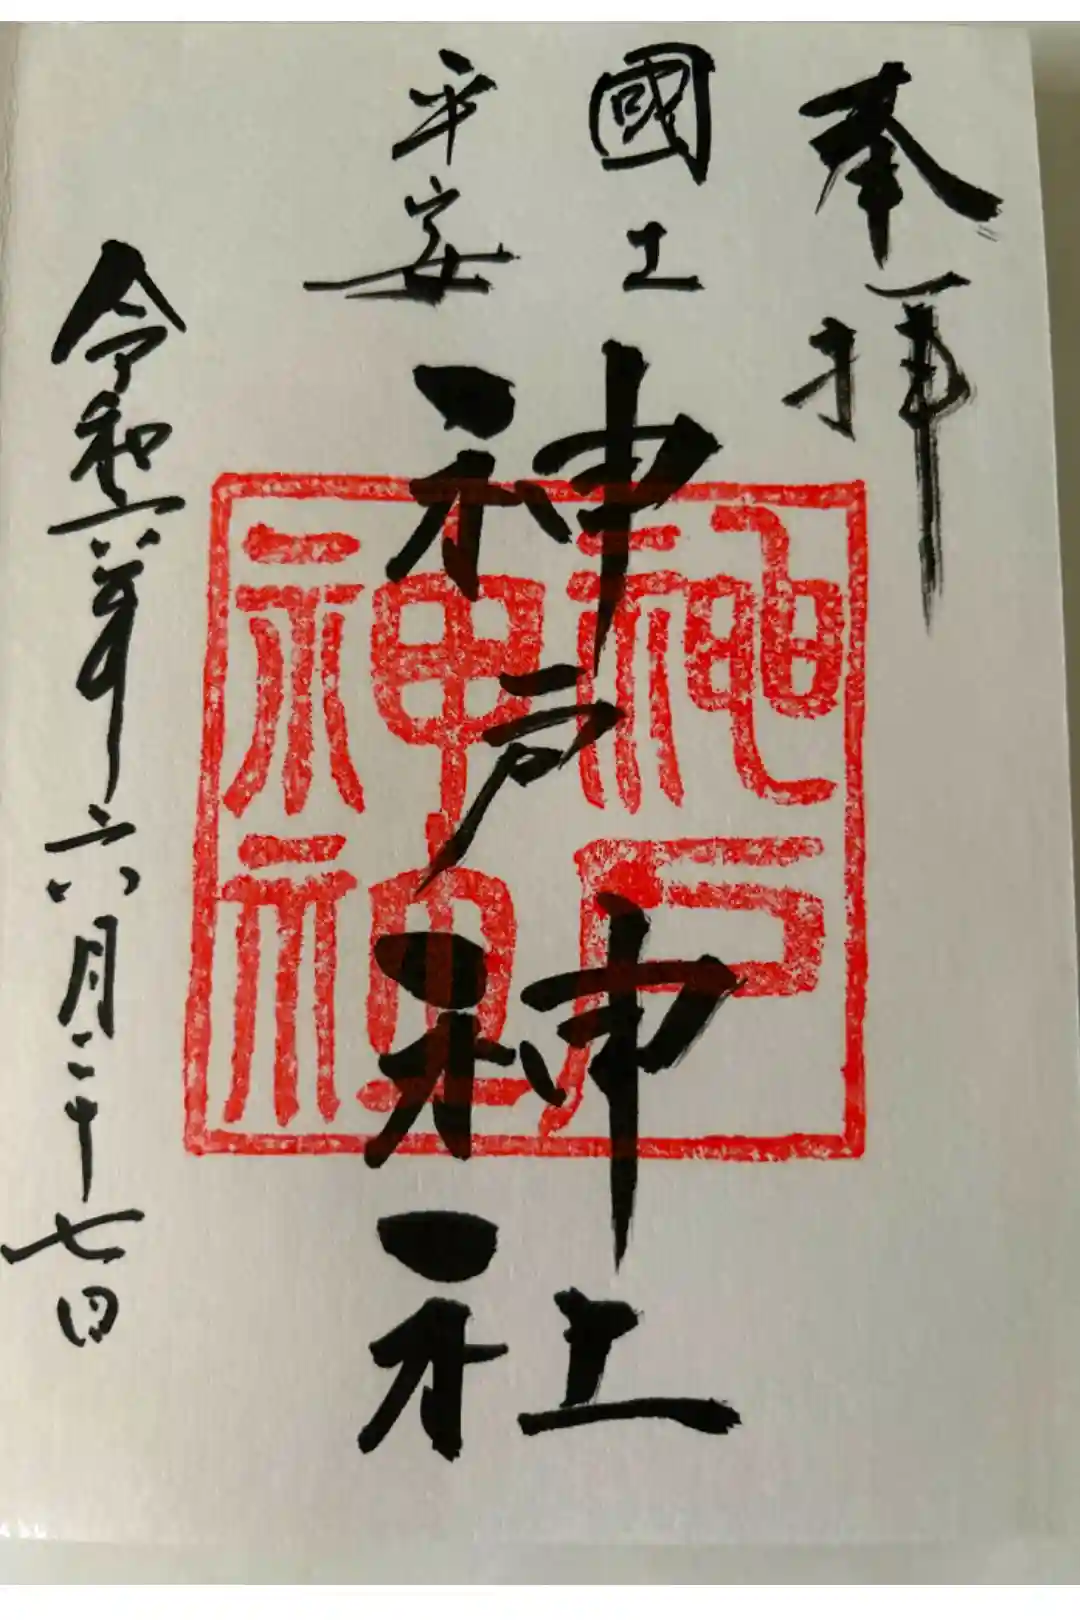 奉拝
國土
平安
神戸神社
神戸
神社
令和六年六月二十七日